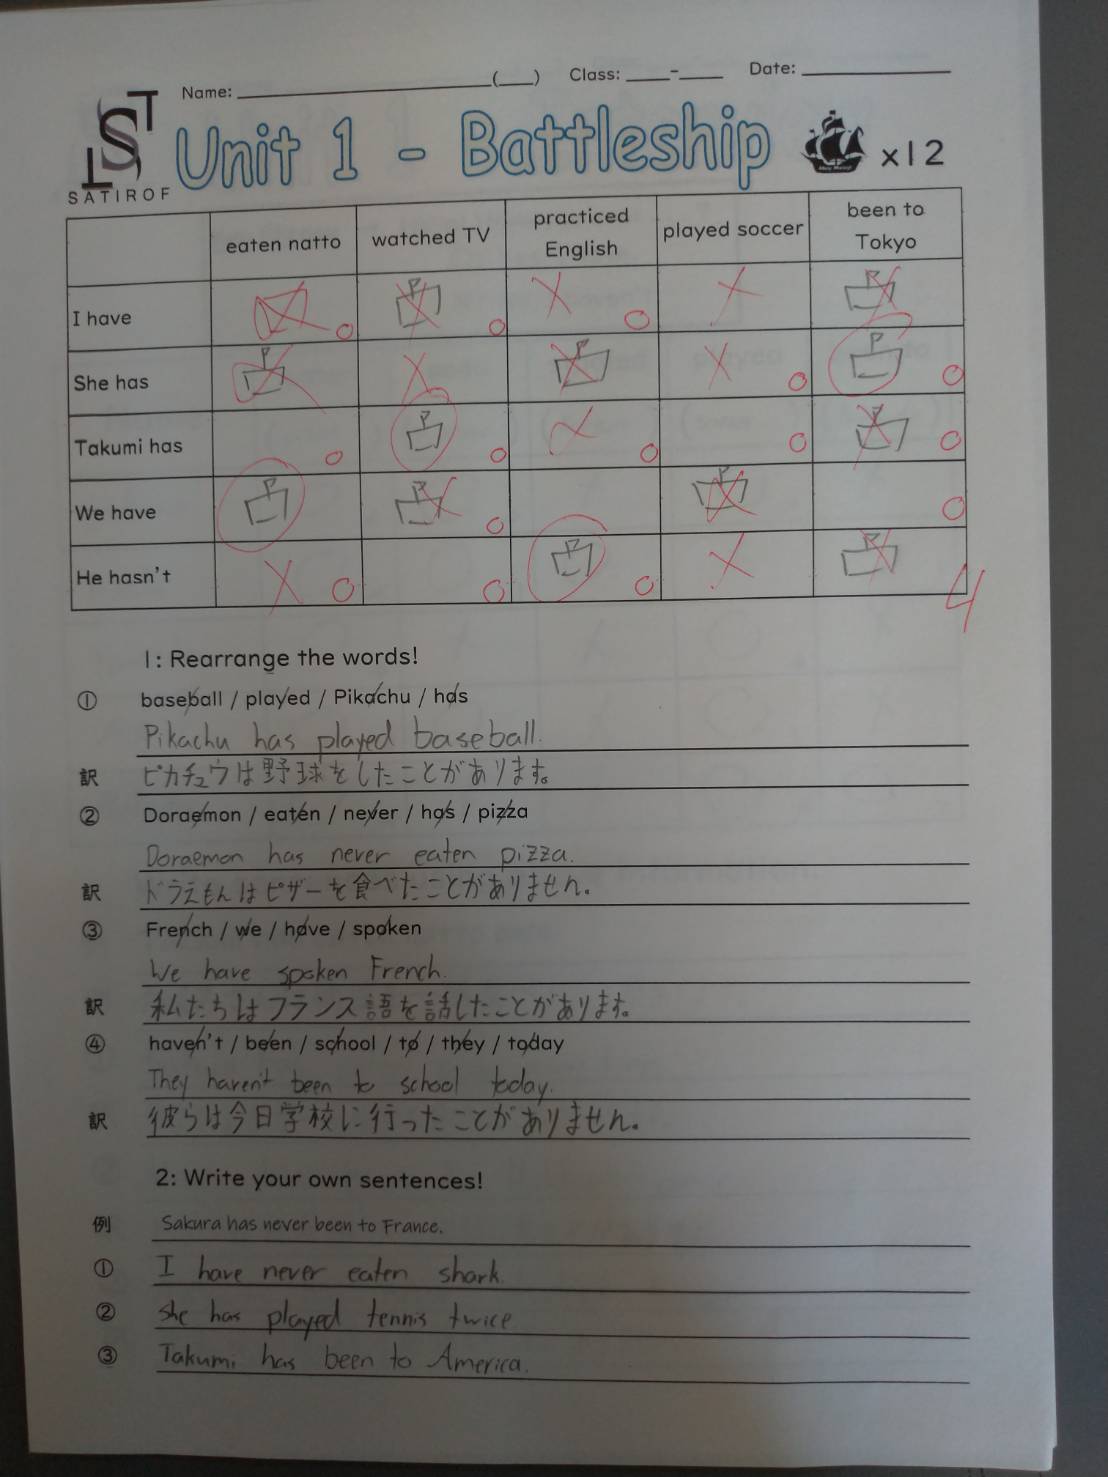 Name: ____________(___) Class: ____-____ Date: ____________
ST
SATIROF
Unit 1 - Battleship x12
eaten natto watched TV practiced English played soccer been to Tokyo
I have
She has
Takumi has
We have
He hasn't
4
1: Rearrange the words!
① baseball / played / Pikachu / has
Pikachu has played baseball.
訳 ピカチュウは野球をしたことがあります。
② Doraemon / eaten / never / has / pizza
Doraemon has never eaten pizza.
訳 ドラえもんはピザーを食べたことがありません。
③ French / we / have / spoken
We have spoken French.
訳 私たちはフランス語を話したことがあります。
④ haven't / been / school / to / they / today
They haven't been to school today.
訳 彼らは今日学校に行ったことがありません。
2: Write your own sentences!
例 Sakura has never been to France.
① I have never eaten shark.
② She has played tennis twice
③ Takumi has been to America.